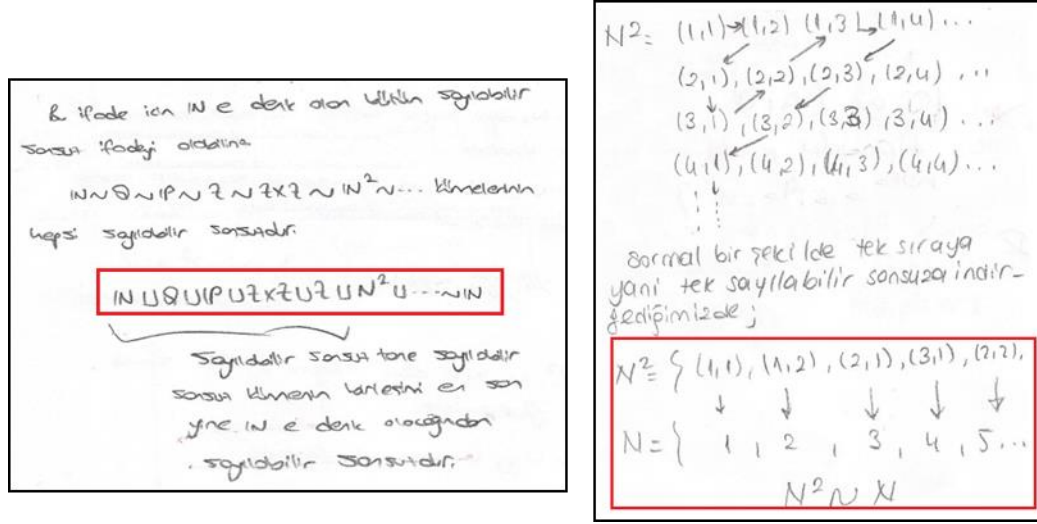 Bu ifade için IN e denk olan bütün sayılabilir
sonsuz ifadeyi alabilirim
IN ~ Q ~ IP ~ Z ~ ZXZ ~ IN² ~ ... kümelerinin
hepsi sayılabilir sonsuzdur.
IN ∪ Q ∪ IP ∪ ZXZ ∪ Z ∪ N² ∪ ... ~ IN
Sayılabilir sonsuz tane sayılabilir
sonsuz kümenin birleşimi en son
yine IN e denk olacağından
sayılabilir sonsuzdur.
N² = (1,1) → (1,2) (1,3) → (1,4) ...
(2,1), (2,2), (2,3), (2,4) , ..
(3,1), (3,2), (3,3) (3,4) ...
(4,1), (4,2), (4,3), (4,4) ...
sormal bir şekilde tek sıraya
yani tek sayılabilir sonsuza indir-
gediğimizde ;
N² = { (1,1), (1,2), (2,1), (3,1), (2,2),
↓ ↓ ↓ ↓ ↓
N = { 1 , 2 , 3 , 4 , 5...
N² ~ N